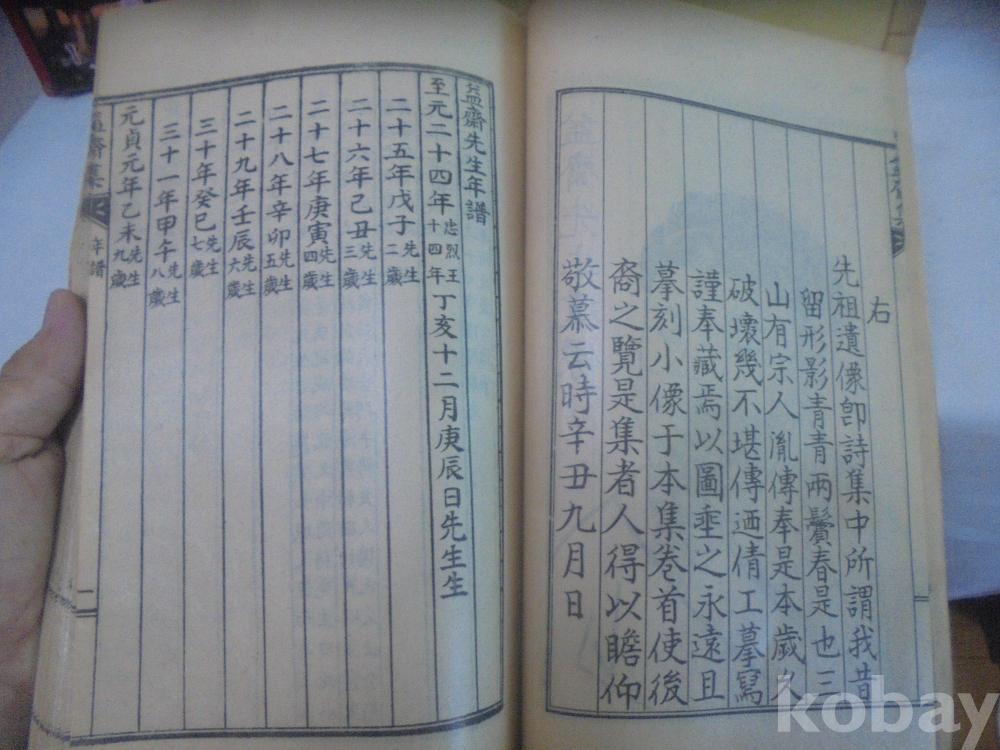 右
先祖遺像卽詩集中所謂我昔
留形影青青兩鬢春是也三
山有宗人胤傳奉是本歲久
破壞幾不堪傳迺倩工摹寫
謹奉藏焉以圖垂之永遠且
摹刻小像于本集卷首使後
裔之覽是集者人得以瞻仰
敬慕云時辛丑九月日
益齋先生年譜
至元二十四年忠烈王十四年丁亥十二月庚辰日先生生
二十五年戊子先生二歲
二十六年己丑先生三歲
二十七年庚寅先生四歲
二十八年辛卯先生五歲
二十九年壬辰先生六歲
三十年癸巳先生七歲
三十一年甲午先生八歲
元貞元年乙未先生九歲
益齋集
年譜
一
kobay